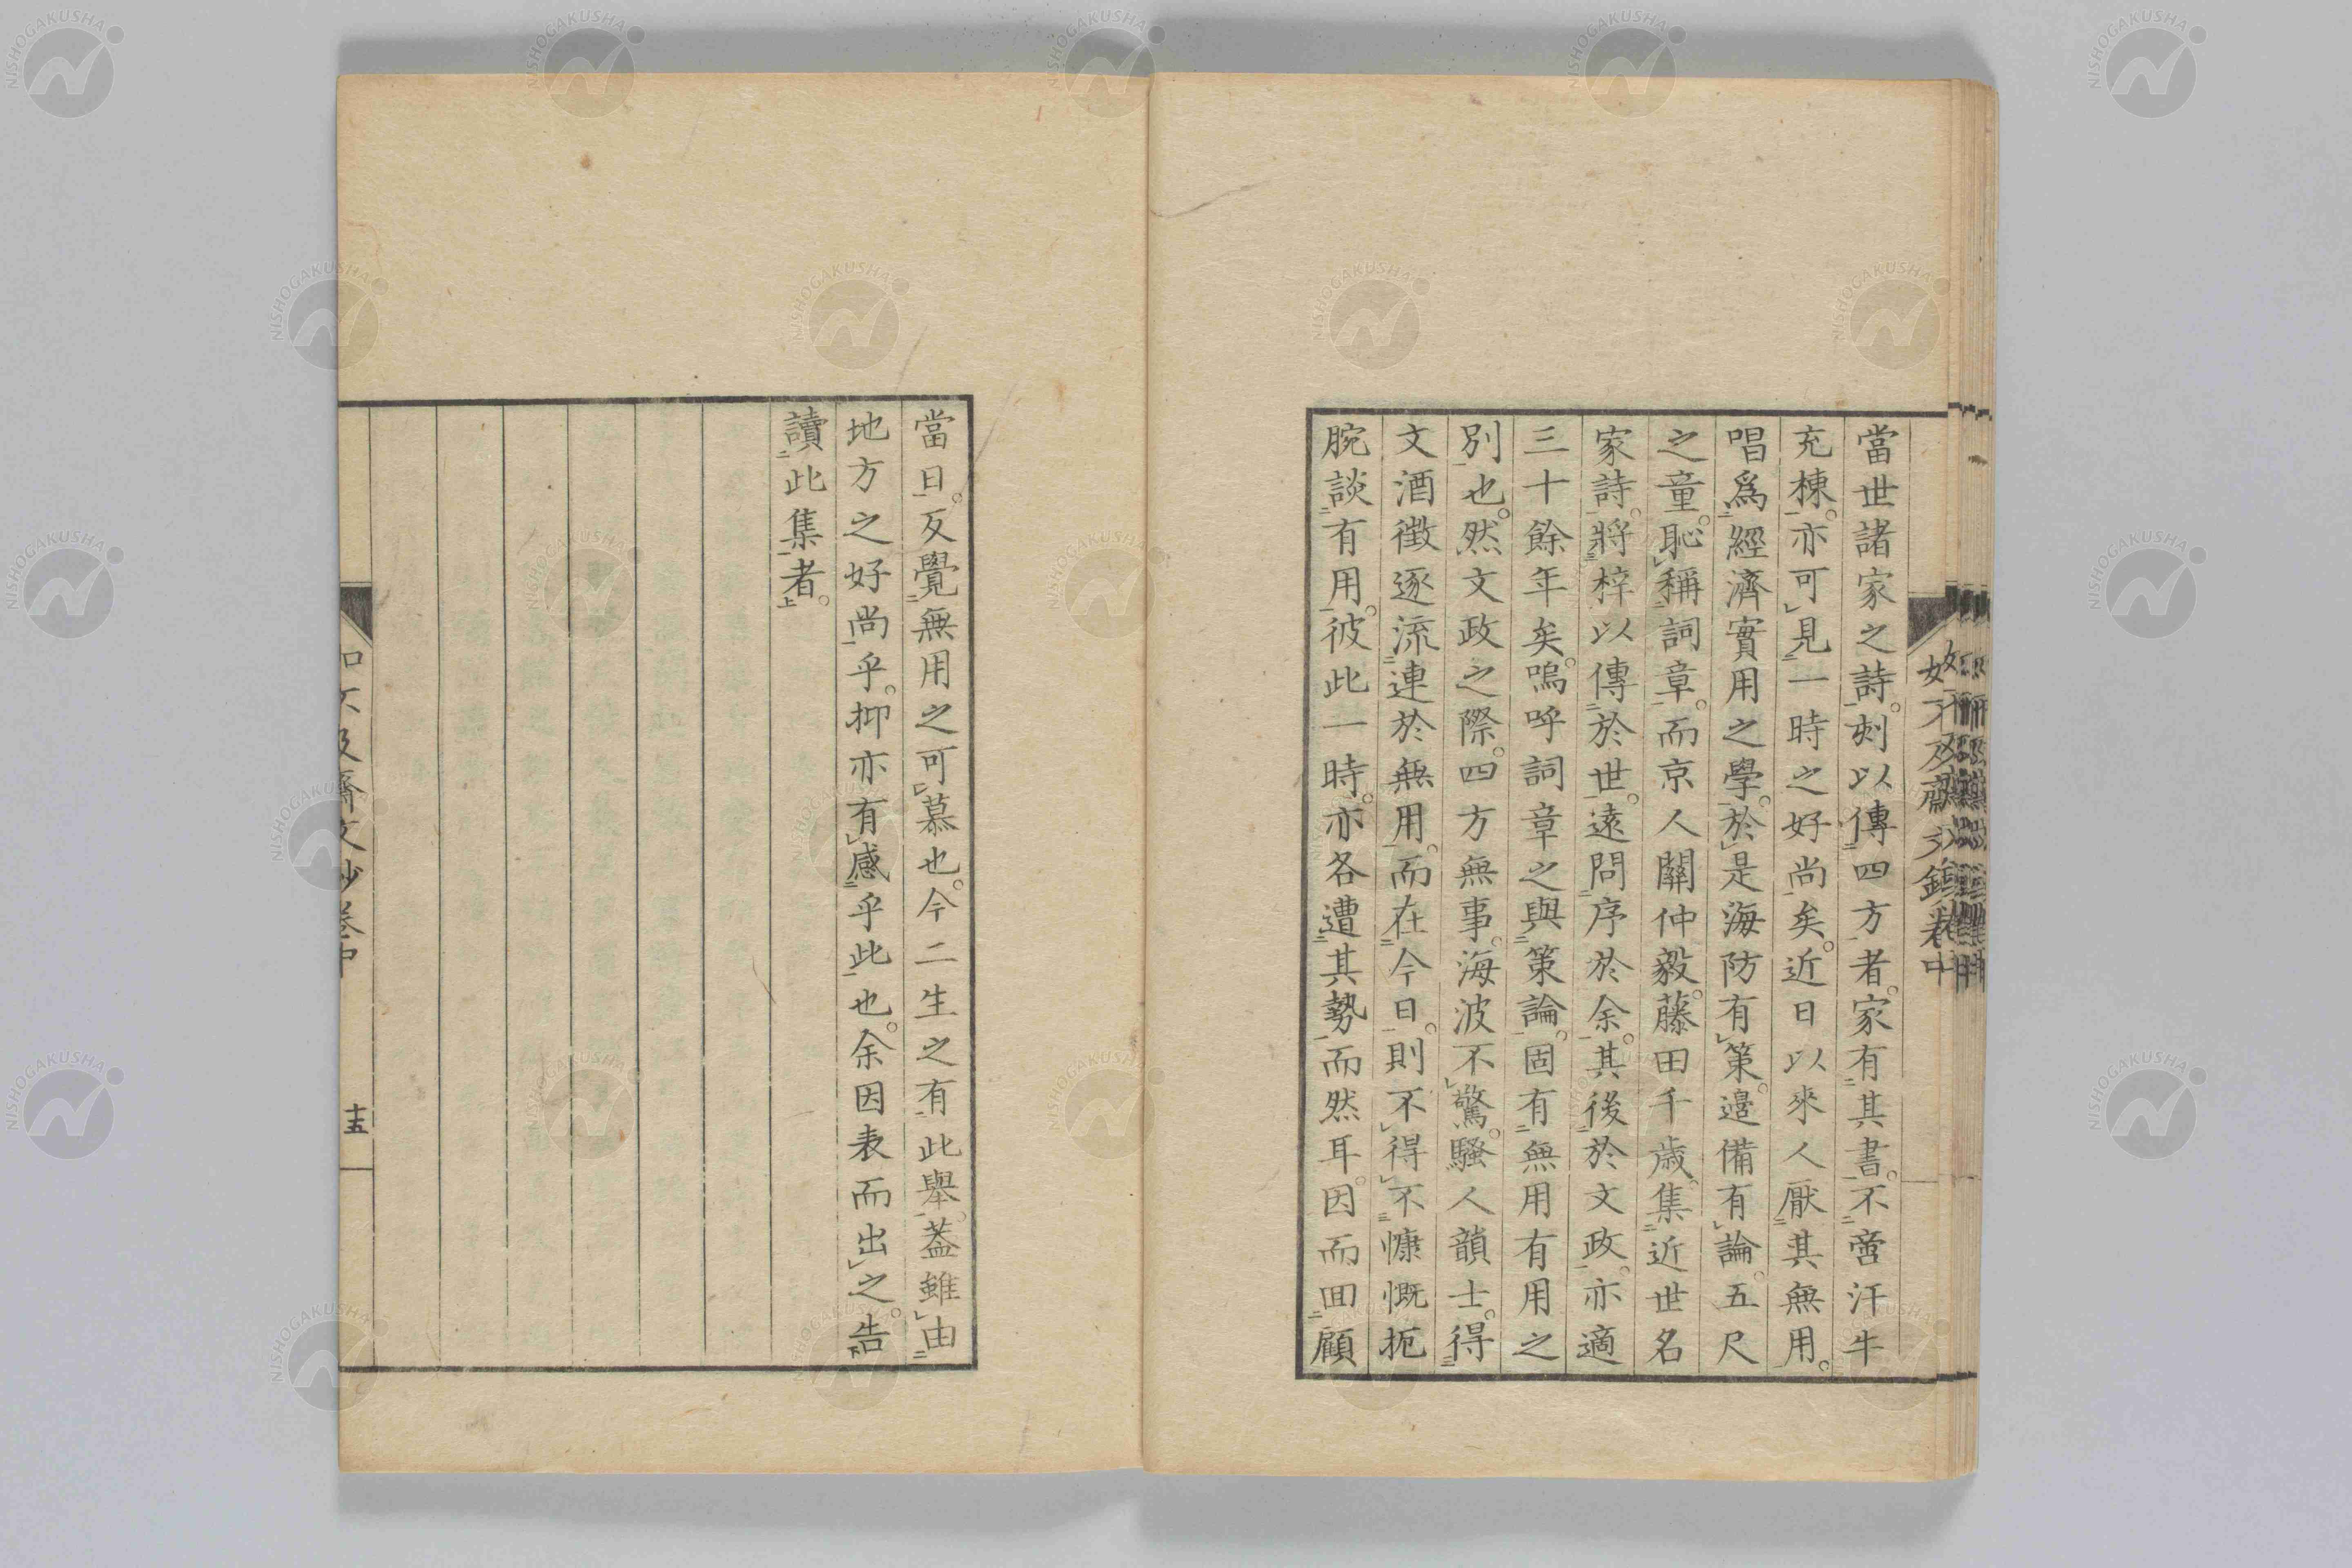 當世諸家之詩。刻以傳四方者。家有其書。不啻汗牛
充棟。亦可見一時之好尚矣。近日以來人厭其無用。
唱爲經濟實用之學。於是海防有策。邊備有論。五尺
之童。恥稱詞章。而京人關仲毅。藤田千歲。集近世名
家詩。將梓以傳於世。遠問序於余。其後於文政。亦適
三十餘年矣。嗚呼詞章之與策論。固有無用有用之
別也。然文政之際。四方無事。海波不驚。騷人韻士。得
文酒徵逐流連於無用。而在今日。則不得不慷慨扼
腕談有用。彼此一時。亦各遭其勢而然耳。因而回顧
當日。反覺無用之可慕也。今二生之有此舉。蓋雖由
地方之好尚乎。抑亦有感乎此也。余因表而出之。告
讀此集者。
如不及齋文鈔卷中
十五
NISHOGAKUSHA